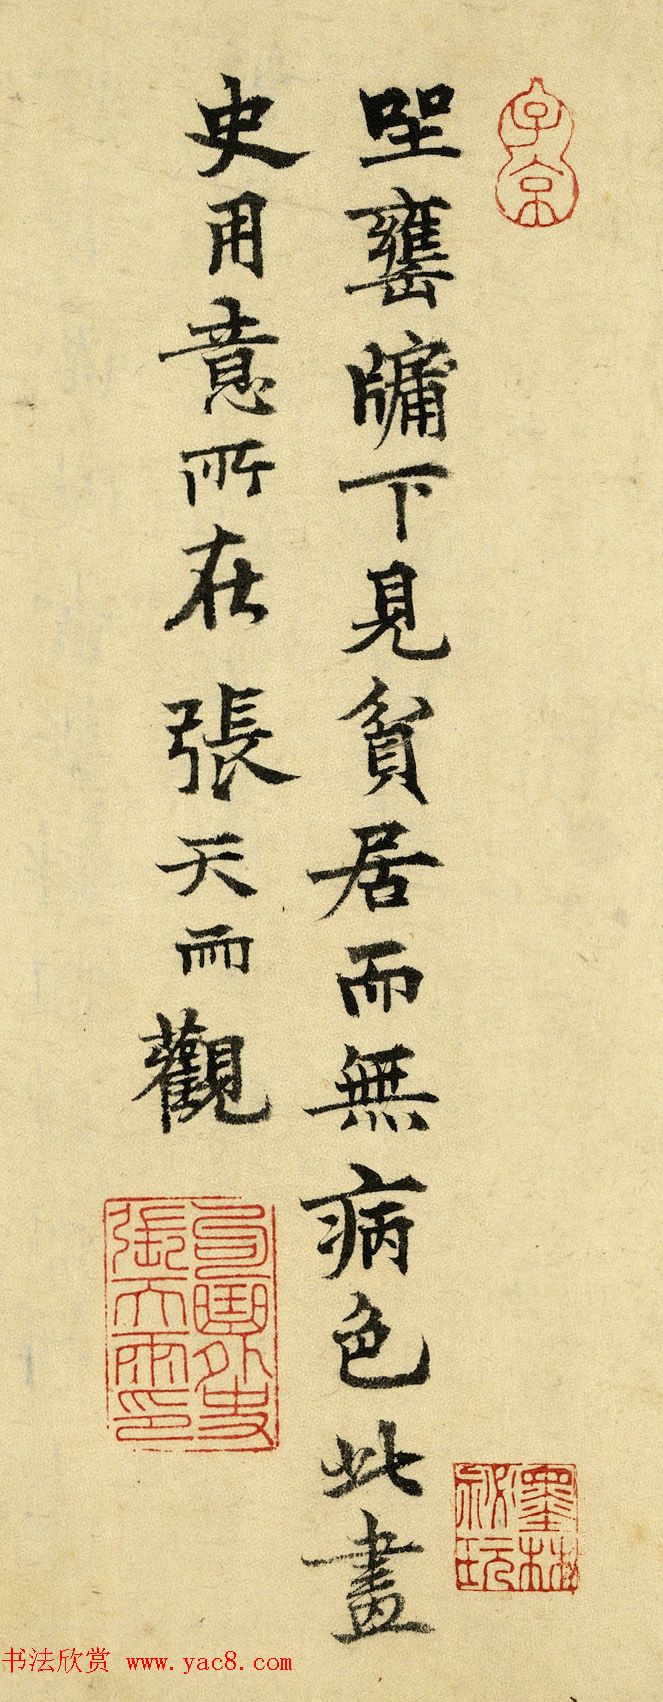 子京
坐甕牖下見貧居而無病色此畫
史用意所在 張天雨觀
句曲外史
張天雨印
墨林
祕玩
书法欣赏 www.yac8.com